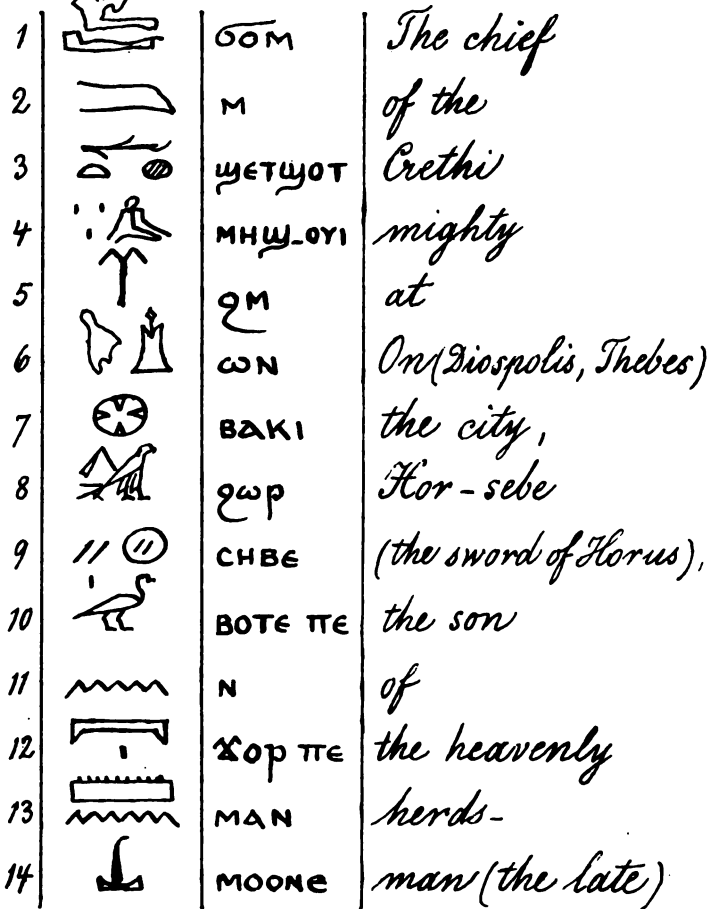 1 ϭⲟⲙ The chief
2 ⲙ of the
3 ϣⲉⲧϣⲟⲧ Crethi
4 ⲙⲏϣ-ⲟⲩⲓ mighty
5 ϩⲙ at
6 ⲱⲛ On (Diospolis, Thebes)
7 ⲃⲁⲕⲓ the city,
8 ϩⲱⲣ Hor-sebe
9 ⲥⲏⲃⲉ (the sword of Horus),
10 ⲃⲟⲧⲉ ⲡⲉ the son
11 ⲛ of
12 ⲭⲟⲣ ⲡⲉ the heavenly
13 ⲙⲁⲛ herds-
14 ⲙⲟⲟⲛⲉ man (the late)